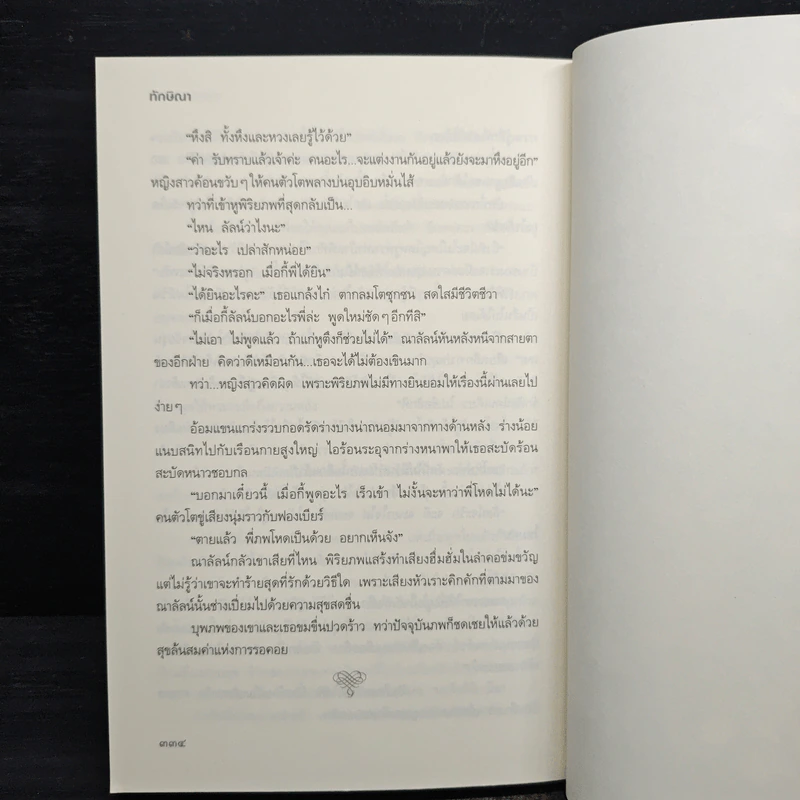 ทักษิณา
“หึงสิ ทั้งหึงและหวงเลยรู้ไว้ด้วย”
“ค่า รับทราบแล้วเจ้าค่ะ คนอะไร...จะแต่งงานกันอยู่แล้วยังจะมาหึงอยู่อีก”
หญิงสาวค้อนขวับๆ ให้คนตัวโตพลางบ่นอุบอิบหมั่นไส้
ทว่าที่เข้าหูพิริยภพที่สุดกลับเป็น...
“ไหน ลัลน์ว่าไงนะ”
“ว่าอะไร เปล่าสักหน่อย”
“ไม่จริงหรอก เมื่อกี้พี่ได้ยิน”
“ได้ยินอะไรคะ” เธอแกล้งไก๋ ตากลมโตซุกซน สดใสมีชีวิตชีวา
“ก็เมื่อกี้ลัลน์บอกอะไรพี่ล่ะ พูดใหม่ชัดๆ อีกทีสิ”
“ไม่เอา ไม่พูดแล้ว ถ้าแก่หูตึงก็ช่วยไม่ได้” ณาลัลน์หันหลังหนีจากสายตา
ของอีกฝ่าย คิดว่าดีเหมือนกัน...เธอจะได้ไม่ต้องเขินมาก
ทว่า...หญิงสาวคิดผิด เพราะพิริยภพไม่มีทางยินยอมให้เรื่องนี้ผ่านเลยไป
ง่ายๆ
อ้อมแขนแกร่งรวบกอดรัดร่างบางน่าถนอมมาจากทางด้านหลัง ร่างน้อย
แนบสนิทไปกับเรือนกายสูงใหญ่ ไอร้อนระอุจากร่างหนาพาให้เธอสะบัดร้อน
สะบัดหนาวชอบกล
“บอกมาเดี๋ยวนี้ เมื่อกี้พูดอะไร เร็วเข้า ไม่งั้นจะหาว่าพี่โหดไม่ได้นะ”
คนตัวโตขู่เสียงนุ่มราวกับฟองเบียร์
“ตายแล้ว พี่ภพโหดเป็นด้วย อยากเห็นจัง”
ณาลัลน์กลัวเขาเสียที่ไหน พิริยภพแสร้งทำเสียงฮึ่มฮั่มในลำคอข่มขวัญ
แต่ไม่รู้ว่าเขาจะทำร้ายสุดที่รักด้วยวิธีใด เพราะเสียงหัวเราะคิกคักที่ตามมาของ
ณาลัลน์นั้นช่างเปี่ยมไปด้วยความสุขสดชื่น
บุพภพของเขาและเธอขมขื่นปวดร้าว ทว่าปัจจุบันภพก็ชดเชยให้แล้วด้วย
สุขล้นสมค่าแห่งการรอคอย
๓๓๔